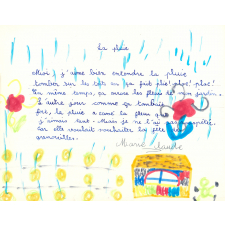 La pluie
Moi j'aime bien entendre la pluie
tomber sur les toits ça fait plic! ploc! ploc!
En même temps, ça arrose les fleurs de mon jardin.
L'autre jour comme ça tombait
fort, la pluie a cassé la fleur que
j'aimais tant. Mais je ne l'ai pas
car elle voulait souhaiter la fête aux
grenouilles.
Marie Claude